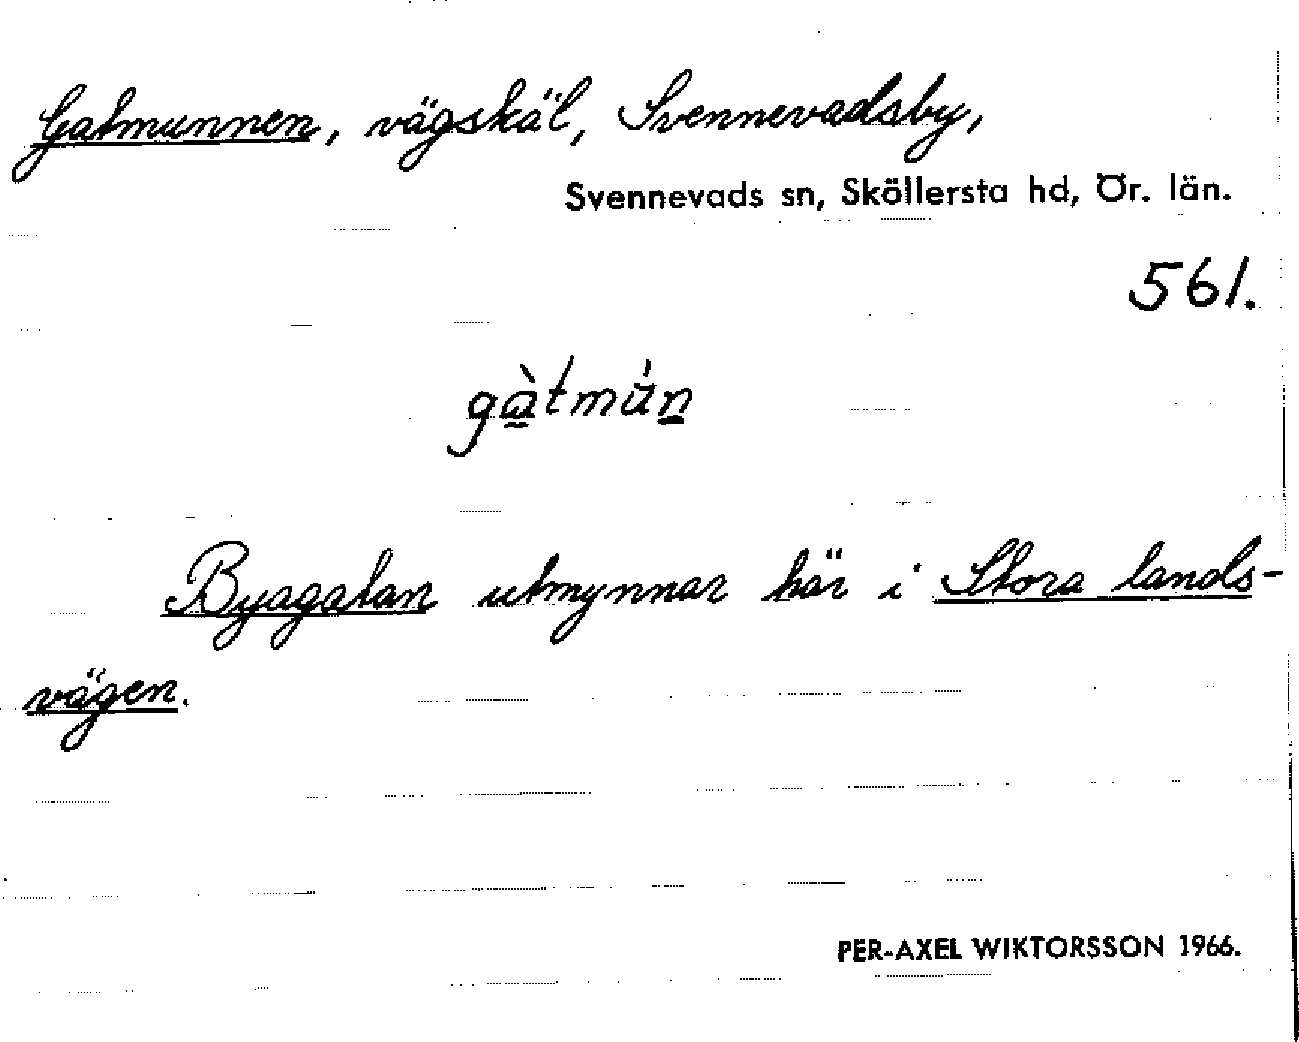 Gatmunnen, vägskäl, Svennevadsby,
Svennevads sn, Sköllersta hd, Ör. län.
561.
gàtmún
Byagatan utmynnar här i Stora lands-
vägen.
PER-AXEL WIKTORSSON 1966.